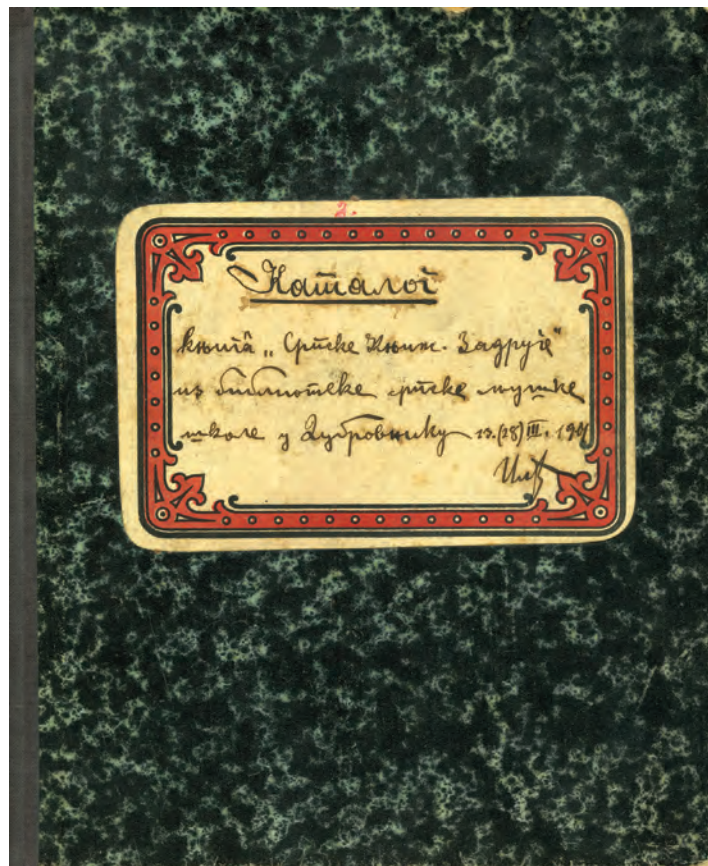 2.
Каталог
књига „Српске Књиж. Задруге“
из библиотеке српске мушке
школе у Дубровнику (28) III.